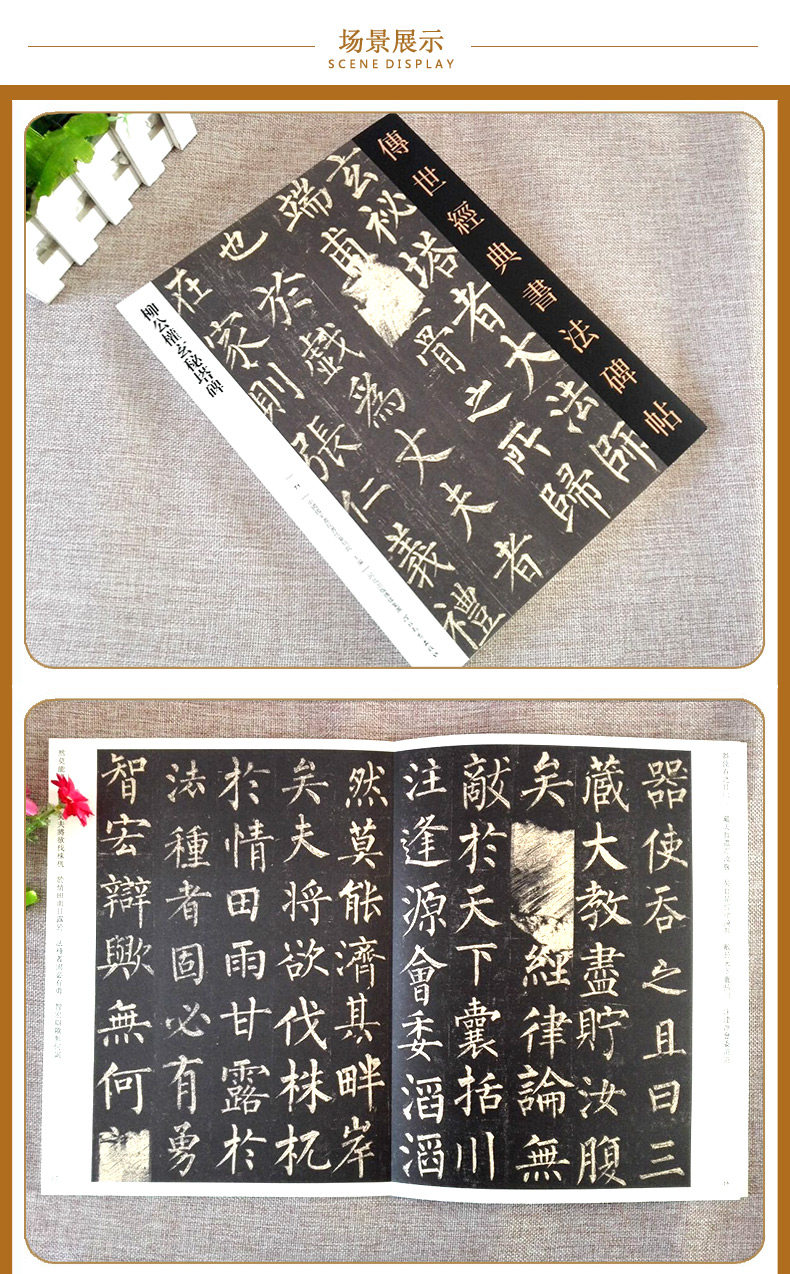 场景展示
SCENE DISPLAY
傳世經典書法碑帖
玄祕塔者大法師
端甫骨之所歸
也於戲為丈夫者
在家則張仁義禮
柳公權玄秘塔碑
器使吞之且曰三
藏大教盡貯汝腹
矣經律論無
敵於天下囊括川
注逢源會委滔滔
然莫能濟其畔岸
矣夫將欲伐株杌
於情田雨甘露於
法種者固必有勇
智宏辯歟無何